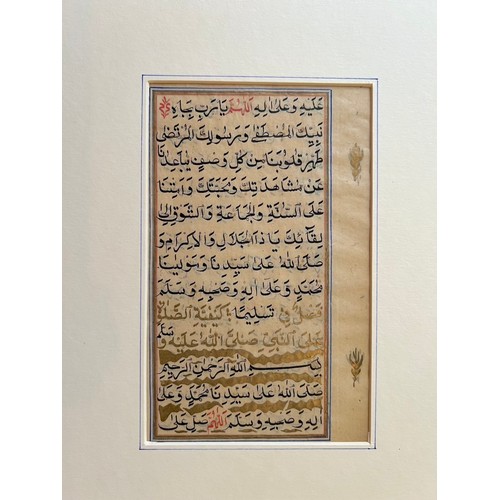 عَلَيْهِ وَعَلٰى اٰلِهِ اَللّٰهُمَّ يَا رَبِّ بِجَاهِ
نَبِيِّكَ الْمُصْطَفٰى وَرَسُولِكَ الْمُرْتَضٰى
طَهِّرْ قُلُوبَنَا مِنْ كُلِّ وَصْفٍ يُبَاعِدُنَا
عَنْ مُشَاهَدَتِكَ وَمَحَبَّتِكَ وَاَمِتْنَا
عَلَى السُّنَّةِ وَالْجَمَاعَةِ وَالشَّوْقِ اِلٰى
لِقَائِكَ يَا ذَا الْجَلَالِ وَالْاِكْرَامِ وَ
صَلَّى اللّٰهُ عَلٰى سَيِّدِنَا وَمَوْلِينَا
مُحَمَّدٍ وَعَلٰى اٰلِهِ وَصَحْبِهِ وَسَلَّمَ
تَسْلِيمًا فَصْلٌ فِي كَيْفِيَّةِ الصَّلٰوةِ
عَلَى النَّبِيِّ صَلَّى اللّٰهُ عَلَيْهِ وَسَلَّمَ
بِسْمِ اللّٰهِ الرَّحْمٰنِ الرَّحِيمِ
صَلَّى اللّٰهُ عَلٰى سَيِّدِنَا مُحَمَّدٍ وَعَلٰى
اٰلِهِ وَصَحْبِهِ وَسَلَّمَ اَللّٰهُمَّ صَلِّ عَلٰى